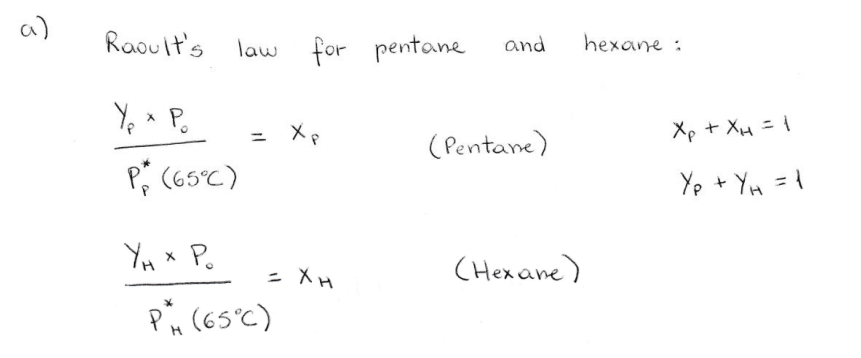 a)
Raoult's law for pentane and hexane :
Y_P × P_o / P*_P (65°C) = X_P (Pentane)
X_P + X_H = 1
Y_P + Y_H = 1
Y_H × P_o / P*_H (65°C) = X_H (Hexane)